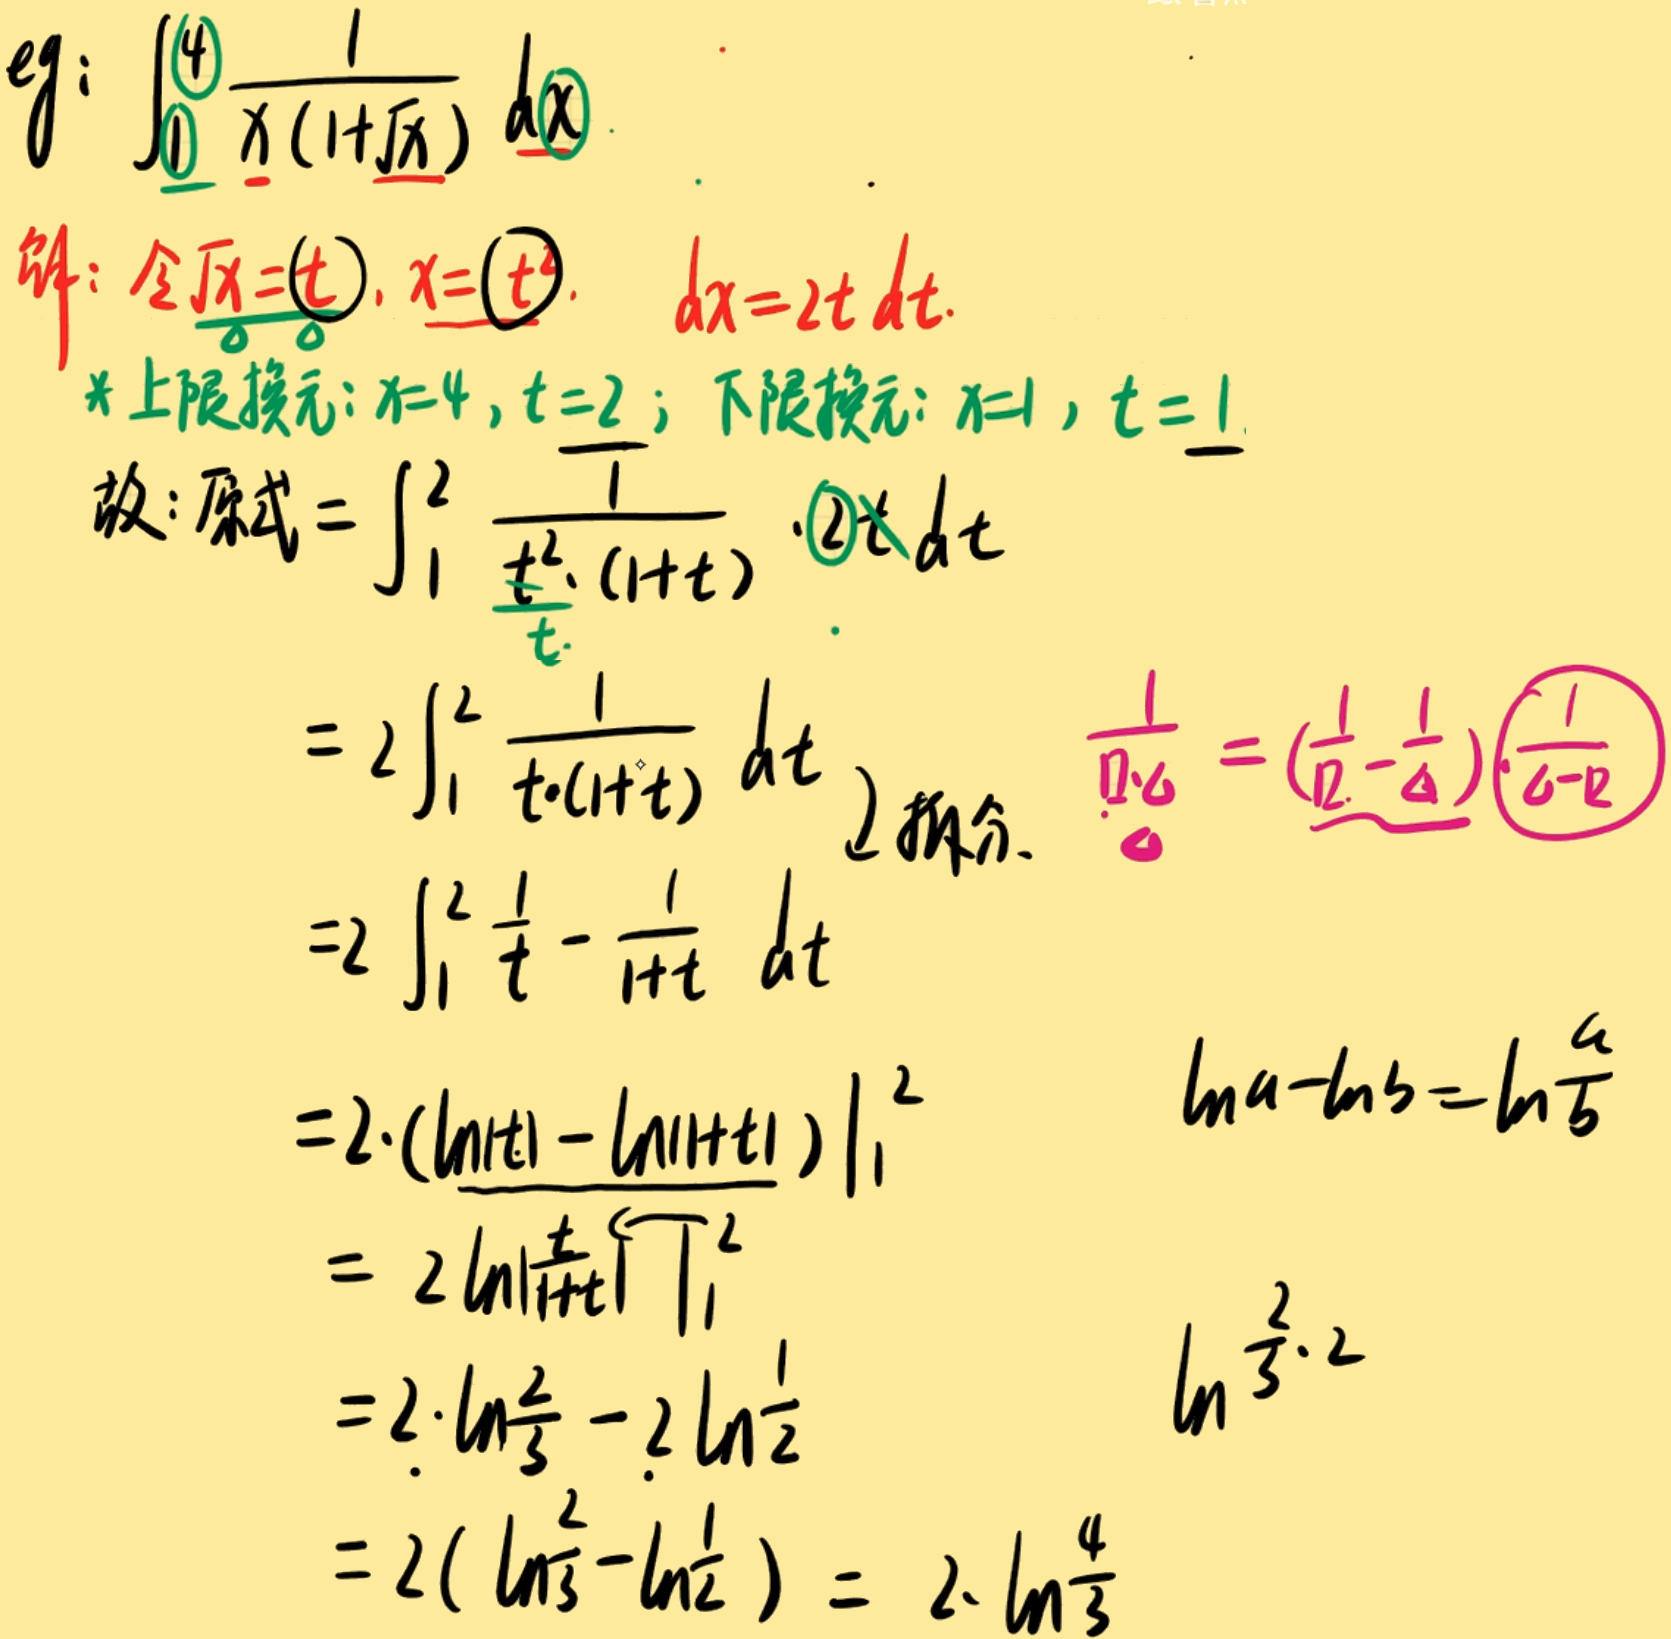 eg: ∫₁⁴ 1/(x(1+√x)) dx
解: 令√x=t, x=t². dx=2t dt.
*上限换元: x=4, t=2; 下限换元: x=1, t=1.
故: 原式=∫₁² 1/(t²·(1+t)) ·2t dt
t.
=2∫₁² 1/(t·(1+t)) dt
拆分、
1/(□·△) = (1/□-1/△)·1/(△-□)
△
=2∫₁² 1/t - 1/(1+t) dt
=2·(ln|t|-ln|1+t|)|₁²
lna-lnb=ln a/b
=2ln|t/(1+t)| |₁²
=2·ln 2/3 -2ln 1/2
ln 2/3·2
=2(ln 2/3 -ln 1/2) = 2·ln 4/3